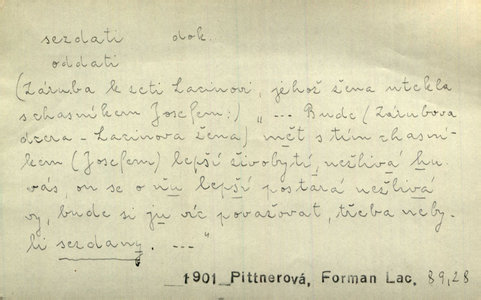 sezdati dok.
oddati
(Záruba k zeti Lacinovi, jehož žena utekla
s chasníkem Josefem:) „ --- Bude (Zárubova
dcera - Lacinova žena) mět s tím chasní-
kem (Josefem) lepší živobytí, nežlivá hu
vás, on se o ňu lepší postárá nežlivá
vy, bude si ju víc považovat, třeba neby-
li sezdany. --- "
1901 Pittnerová, Forman Lac. 89,28